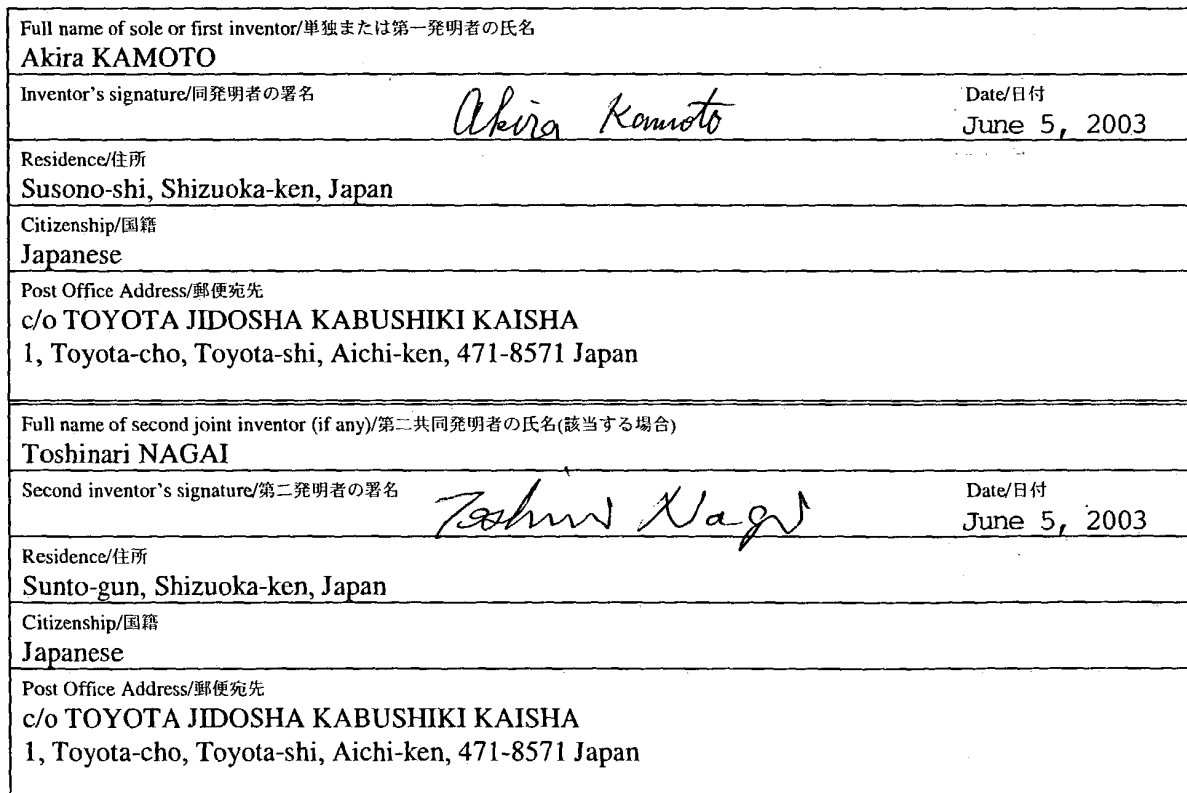 Full name of sole or first inventor/単独または第一発明者の氏名
Akira KAMOTO
Inventor's signature/同発明者の署名 Akira Kamoto Date/日付
June 5, 2003
Residence/住所
Susono-shi, Shizuoka-ken, Japan
Citizenship/国籍
Japanese
Post Office Address/郵便宛先
c/o TOYOTA JIDOSHA KABUSHIKI KAISHA
1, Toyota-cho, Toyota-shi, Aichi-ken, 471-8571 Japan
Full name of second joint inventor (if any)/第二共同発明者の氏名(該当する場合)
Toshinari NAGAI
Second inventor's signature/第二発明者の署名 Nagai Date/日付
June 5, 2003
Residence/住所
Sunto-gun, Shizuoka-ken, Japan
Citizenship/国籍
Japanese
Post Office Address/郵便宛先
c/o TOYOTA JIDOSHA KABUSHIKI KAISHA
1, Toyota-cho, Toyota-shi, Aichi-ken, 471-8571 Japan